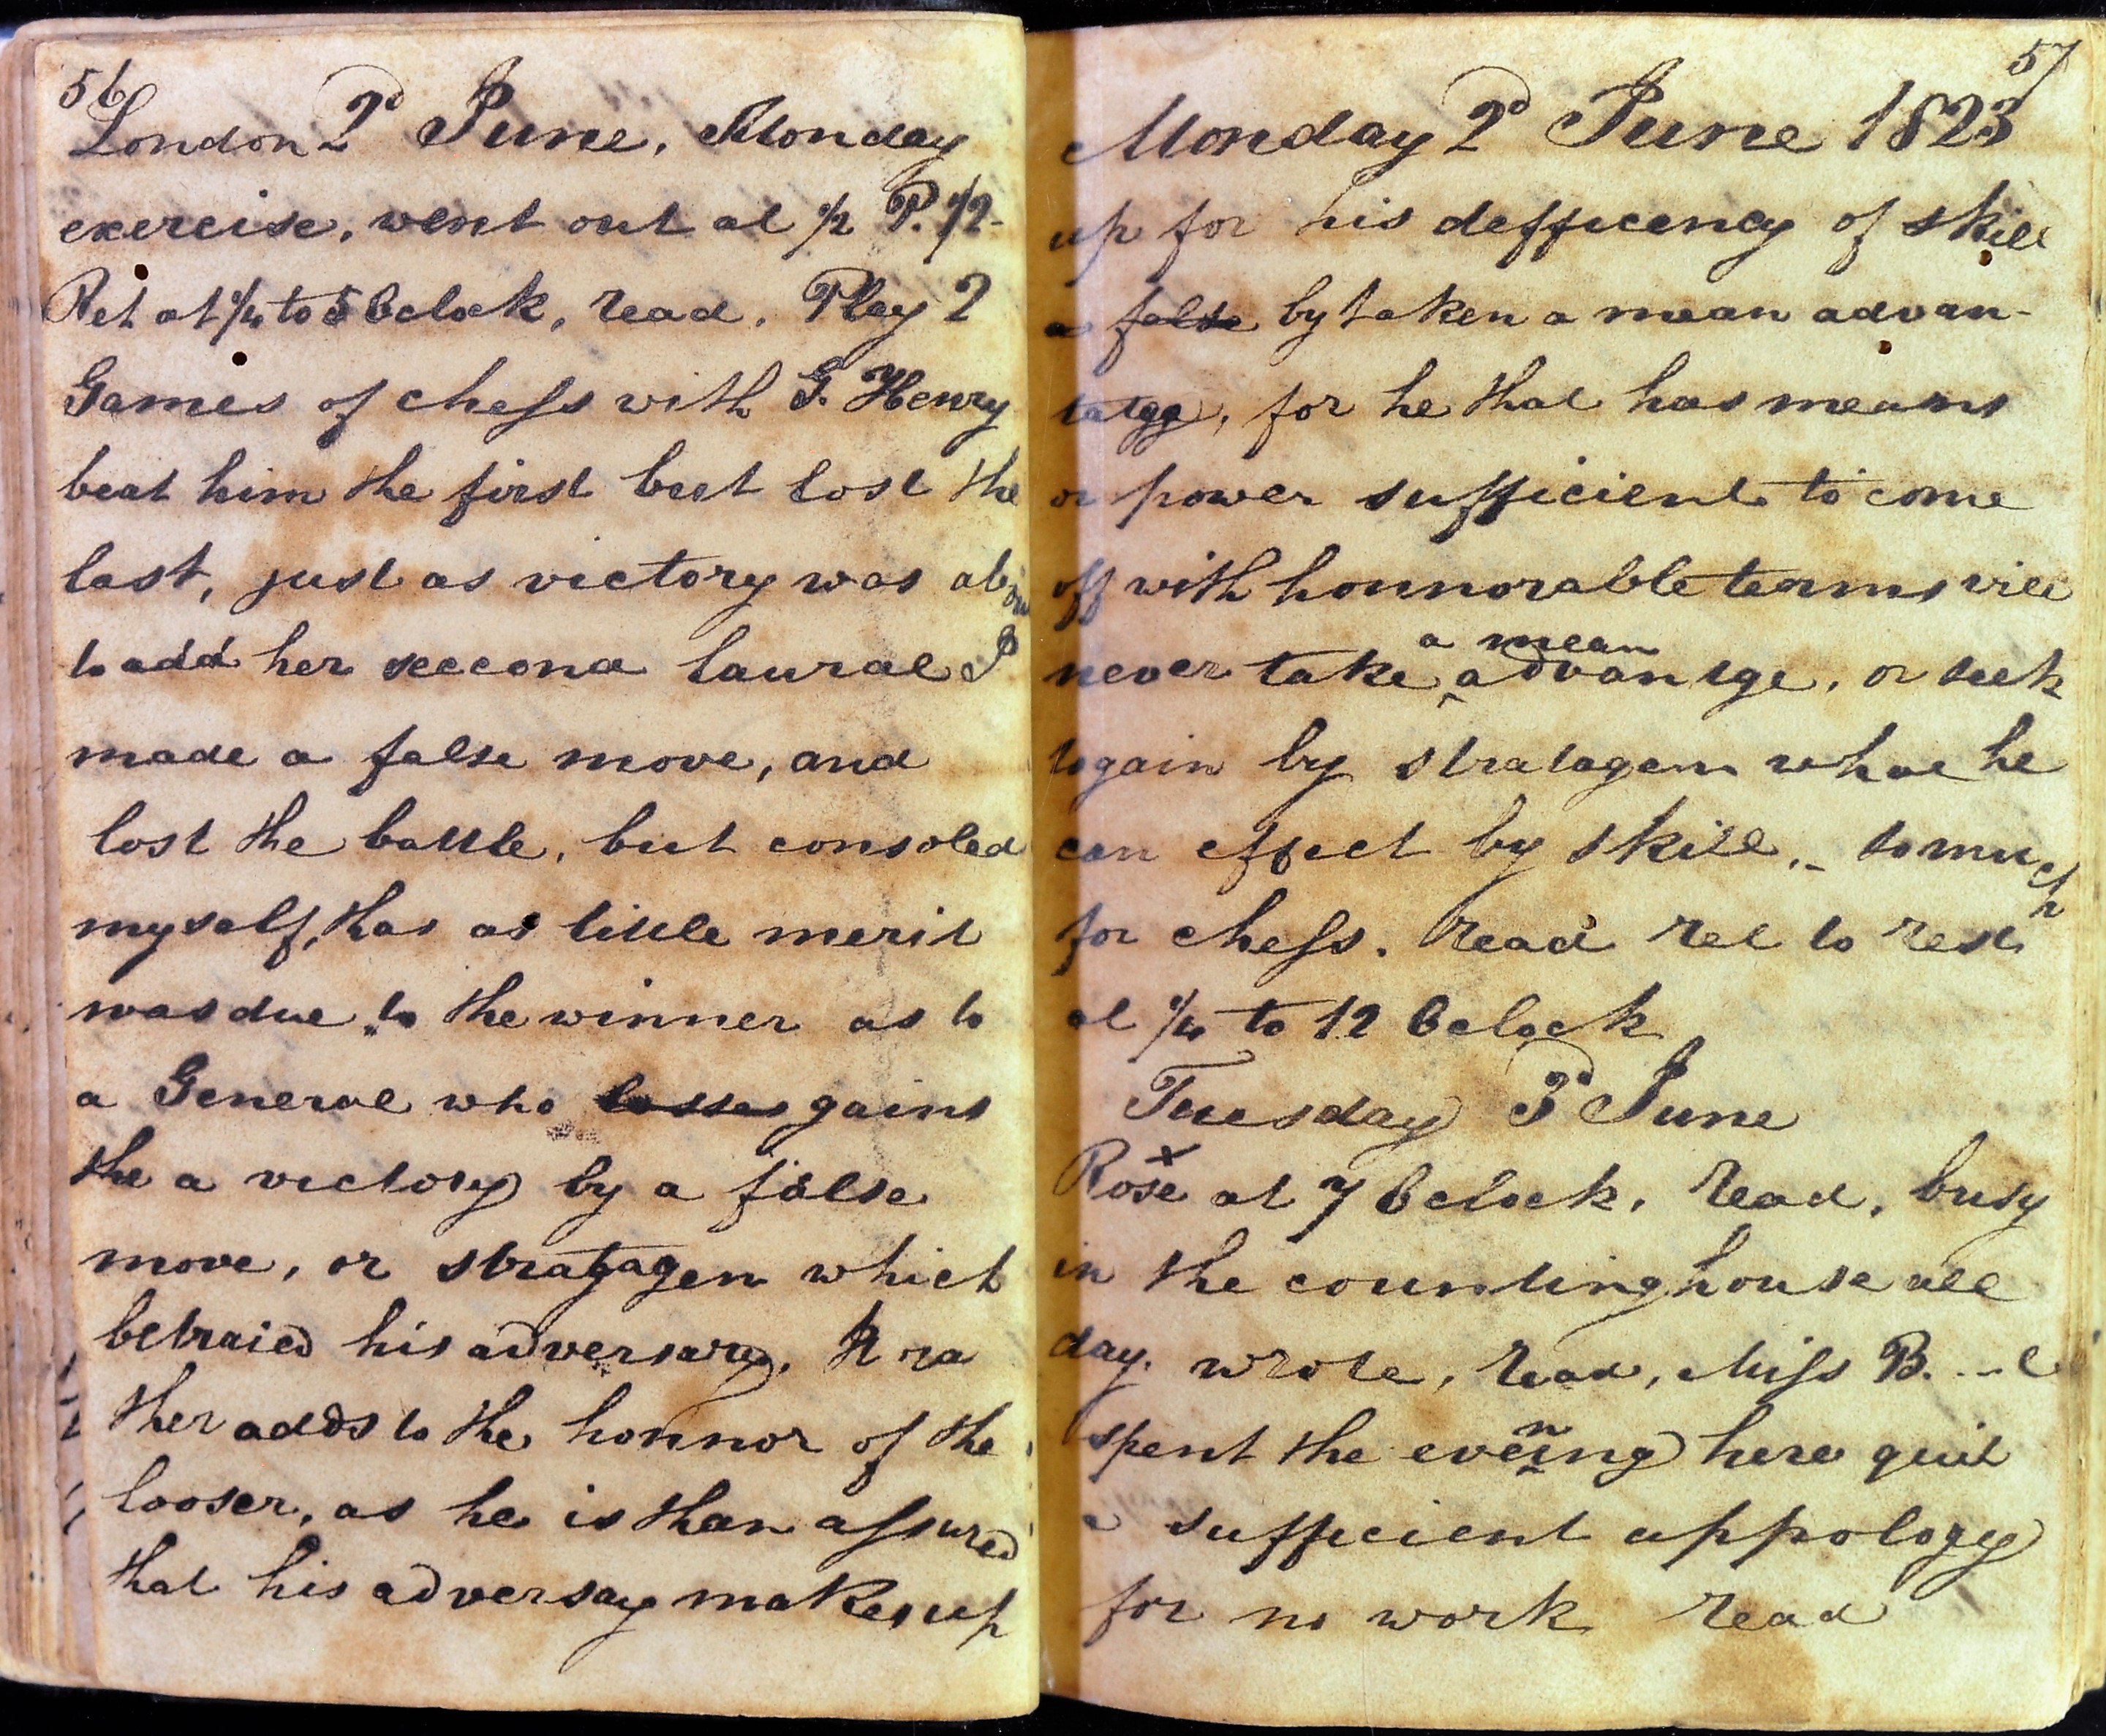 56
London 2d June, Monday
exercise, went out at 1/2 P. 1/2-
Ret at 1/4 to 5 Oclock, read. Play 2
Games of chess with G. Henry
beat him the first but lost the
last, just as victory was abou
to add her seccond laural I
made a false move, and
lost the battle, but consoled
myself, that as little merit
was due to the winner as to
a General who losses gains
the a victory by a false
move, or stratagem which
betraied his adversary. It ra
ther adds to the honnor of the
looser, as he is than assured
that his adversay makes up
57
Monday 2d June 1823
up for his defficency of skill
a false by taken a mean advan-
tatge, for he that has means
or power sufficient to come
off with honnorable terms will
a mean
never take ^ advantge, or seek
to gain by stratagem what he
can effect by skill. - to much
for chess. read ret to rest
at 1/4 to 12 Oclock
Tuesday 3d June
x
Rose at 7 Oclock, read, busy
in the counting house all
day. wrote, read, Miss B...l
spent the evening here quit
a sufficient appology
for no work read